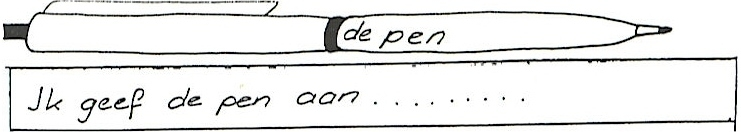 de pen
Ik geef de pen aan . . . . . . . . .